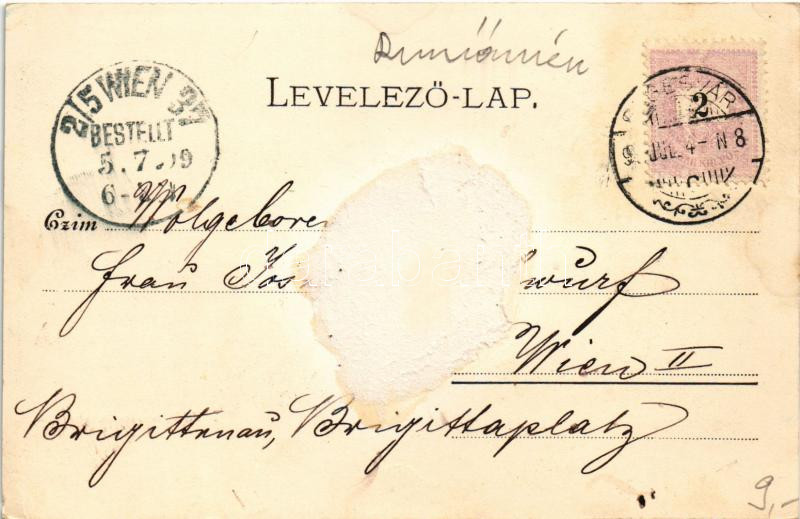 LEVELEZŐ-LAP.
2/5 WIEN 2/7
BESTELLT
5.7.99
2
JUL. 4 - N 8
Czim Wolgebore
Frau Jos wurf
Wien II
Brigittenau, Brigittaplatz
9,-